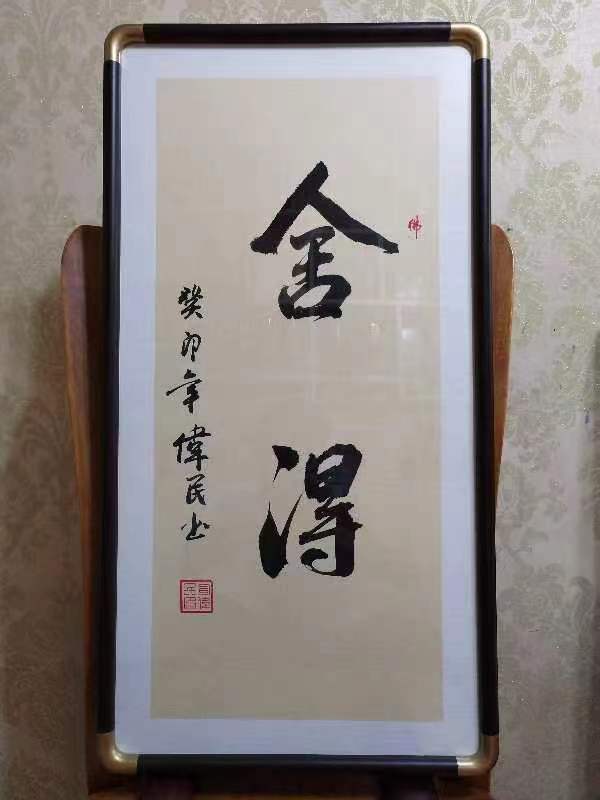 舍得
佛
癸卯年偉民书